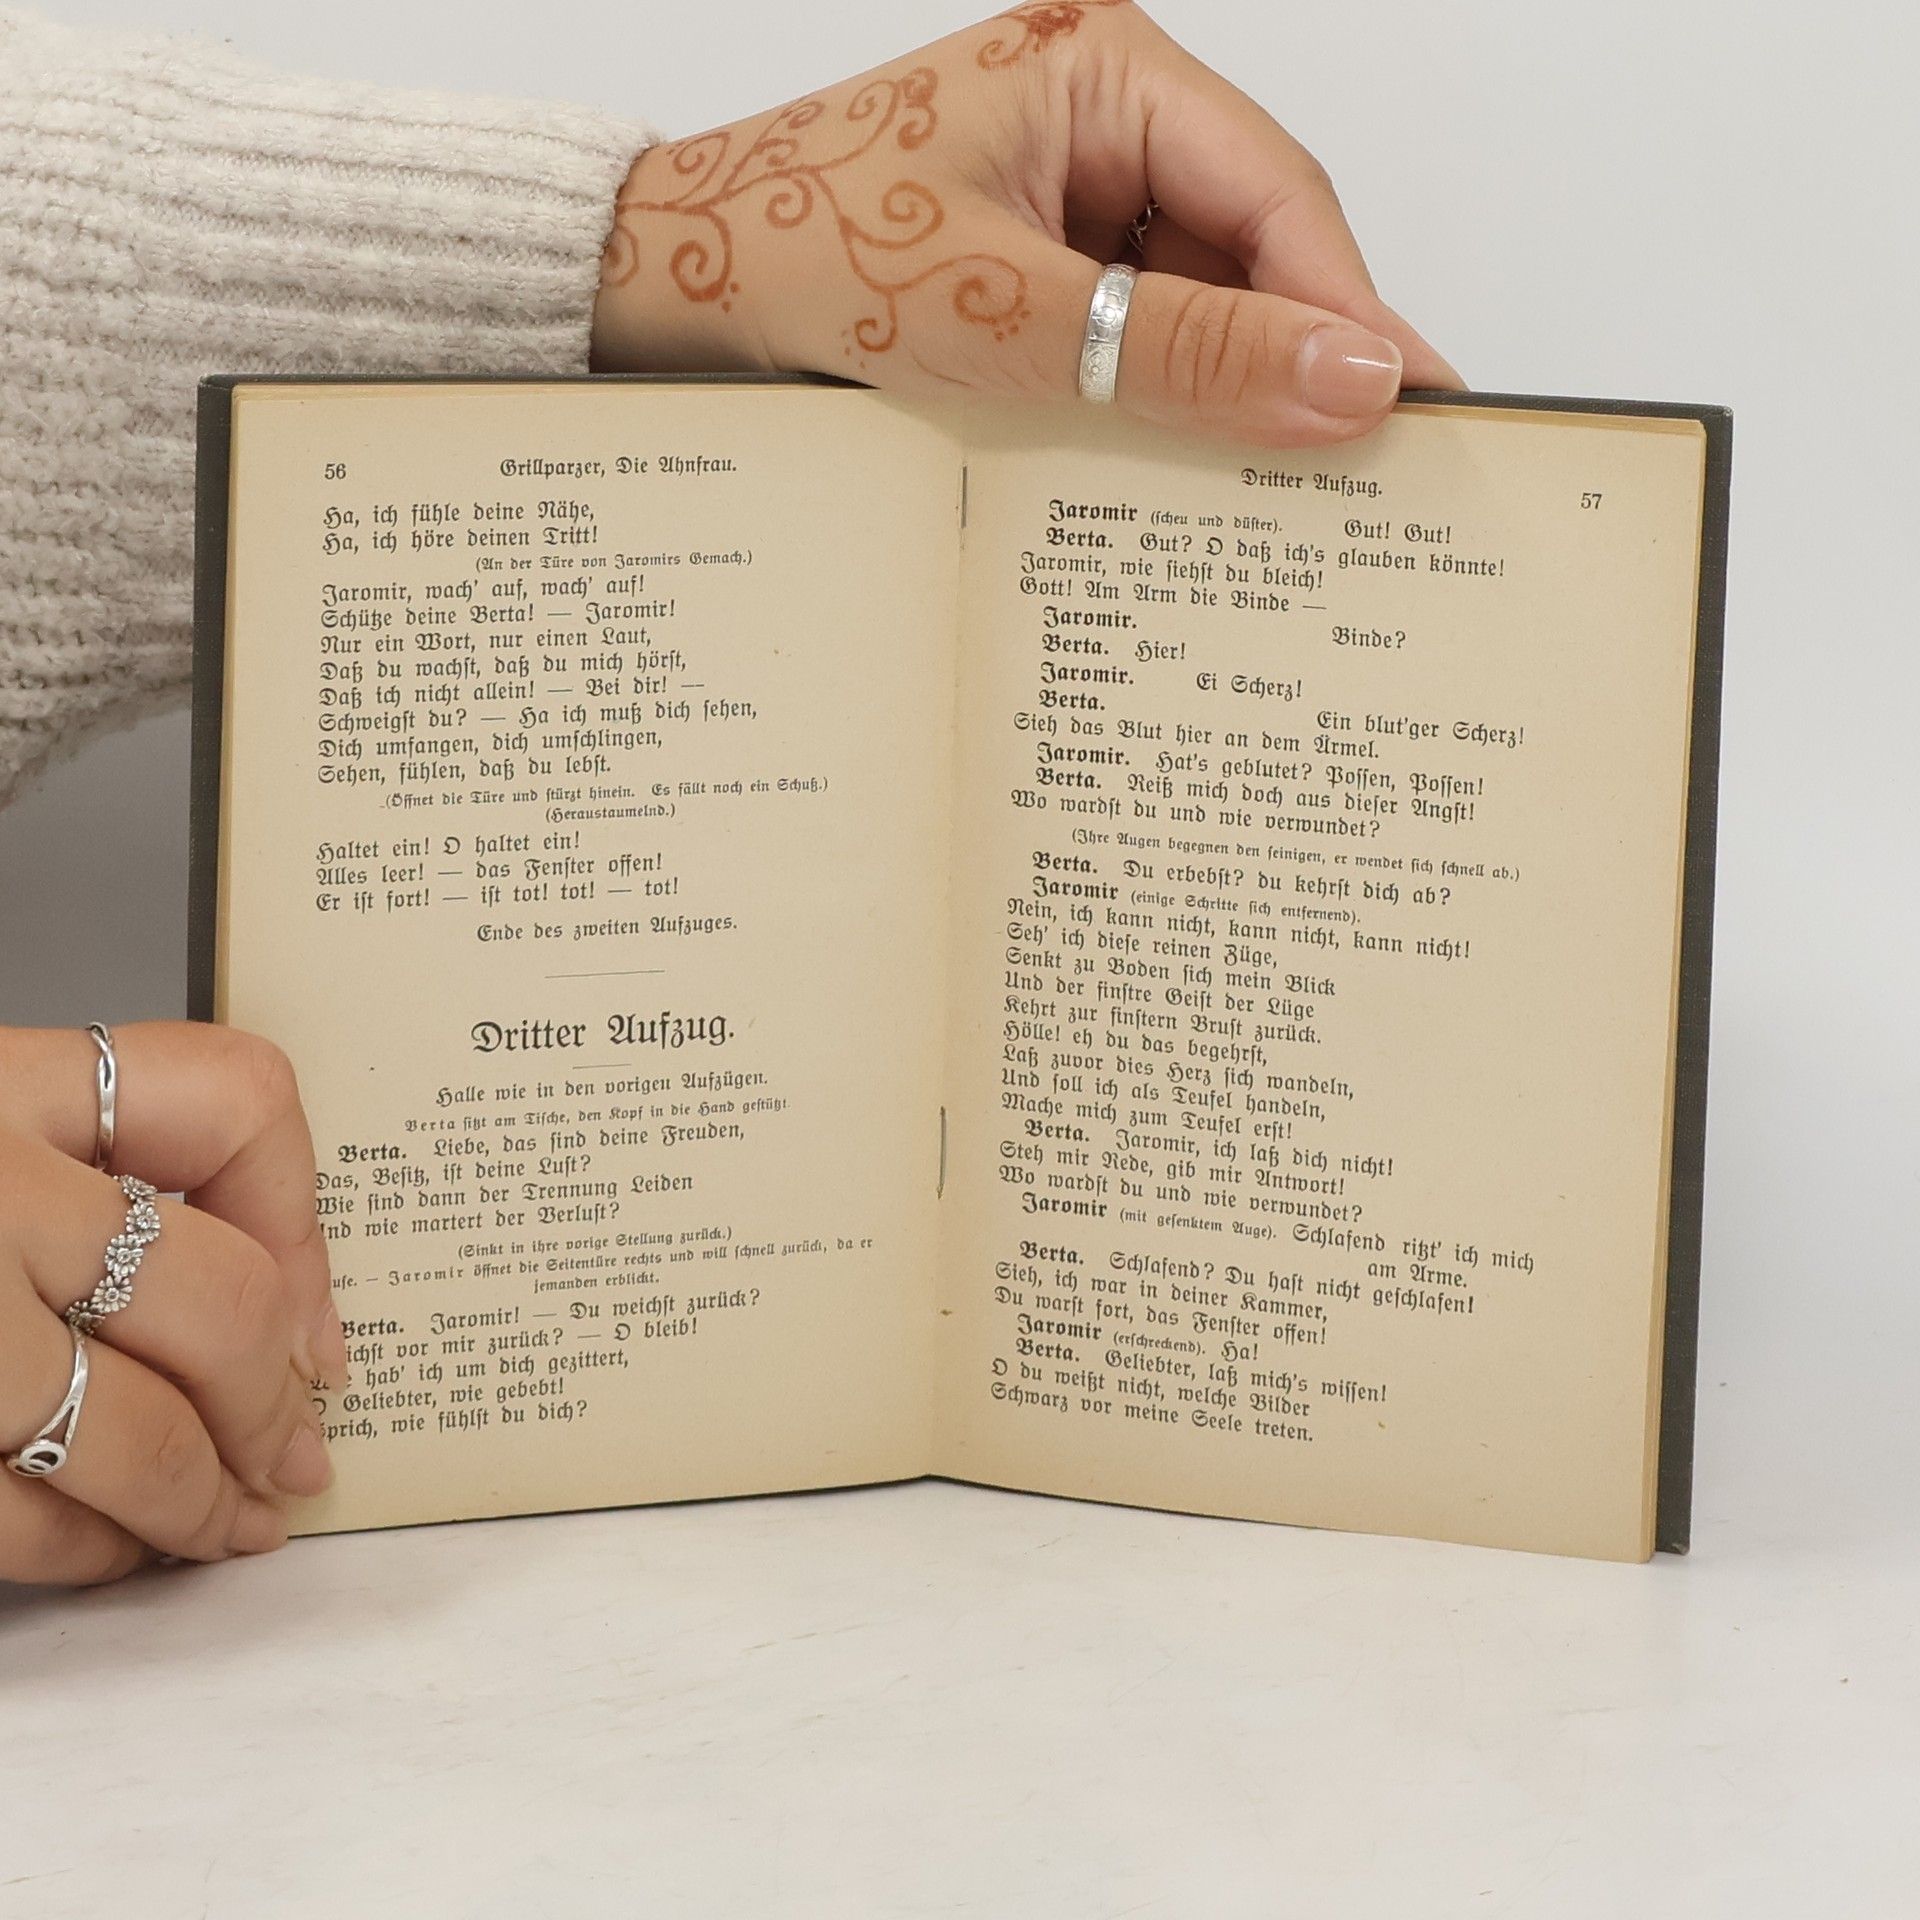 56
Grillparzer, Die Ahnfrau.
Ha, ich fühle deine Nähe,
Ha, ich höre deinen Tritt!
(An der Türe von Jaromirs Gemach.)
Jaromir, wach' auf, wach' auf!
Schütze deine Berta! — Jaromir!
Nur ein Wort, nur einen Laut,
Daß du wachst, daß du mich hörst,
Daß ich nicht allein! — Bei dir! —
Schweigst du? — Ha ich muß dich sehen,
Dich umfangen, dich umschlingen,
Sehen, fühlen, daß du lebst.
(Öffnet die Türe und stürzt hinein. Es fällt noch ein Schuß.)
(Heraustaumelnd.)
Haltet ein! O haltet ein!
Alles leer! — das Fenster offen!
Er ist fort! — ist tot! tot! — tot!
Ende des zweiten Aufzuges.
Dritter Aufzug.
Halle wie in den vorigen Aufzügen.
Berta sitzt am Tische, den Kopf in die Hand gestützt.
Berta. Liebe, das sind deine Freuden,
Das, Besitz, ist deine Lust?
Wie sind dann der Trennung Leiden
Und wie martert der Verlust?
(Sinkt in ihre vorige Stellung zurück.)
— Jaromir öffnet die Seitentüre rechts und will schnell zurück, da er
jemanden erblickt.
Berta. Jaromir! — Du weichst zurück?
vor mir zurück? — O bleib!
hab' ich um dich gezittert,
O Geliebter, wie gebebt!
Sprich, wie fühlst du dich?
Dritter Aufzug.
57
Jaromir (scheu und düster). Gut! Gut!
Berta. Gut? O daß ich's glauben könnte!
Jaromir, wie siehst du bleich!
Gott! Am Arm die Binde —
Jaromir. Binde?
Berta. Hier!
Jaromir. Ei Scherz!
Berta. Ein blut'ger Scherz!
Sieh das Blut hier an dem Ärmel.
Jaromir. Hat's geblutet? Possen, Possen!
Berta. Reiß mich doch aus dieser Angst!
Wo wardst du und wie verwundet?
(Ihre Augen begegnen den seinigen, er wendet sich schnell ab.)
Berta. Du erbebst? du kehrst dich ab?
Jaromir (einige Schritte sich entfernend).
Nein, ich kann nicht, kann nicht, kann nicht!
Seh' ich diese reinen Züge,
Senkt zu Boden sich mein Blick
Und der finstre Geist der Lüge
Kehrt zur finstern Brust zurück.
Hölle! eh du das begehrst,
Laß zuvor dies Herz sich wandeln,
Und soll ich als Teufel handeln,
Mache mich zum Teufel erst!
Berta. Jaromir, ich laß dich nicht!
Steh mir Rede, gib mir Antwort!
Wo wardst du und wie verwundet?
Jaromir (mit gesenktem Auge). Schlafend ritzt' ich mich
am Arme.
Berta. Schlafend? Du hast nicht geschlafen!
Sieh, ich war in deiner Kammer,
Du warst fort, das Fenster offen!
Jaromir (erschreckend). Ha!
Berta. Geliebter, laß mich's wissen!
O du weißt nicht, welche Bilder
Schwarz vor meine Seele treten.